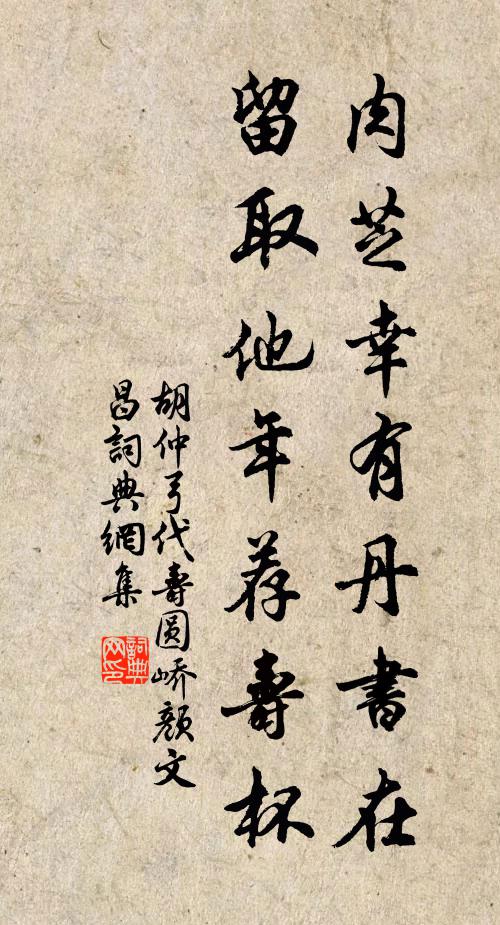 肉芝幸有丹書在
留取他年荐壽杯
胡仲弓代壽圆嶠顏文
昌詞典網集
詞典網印